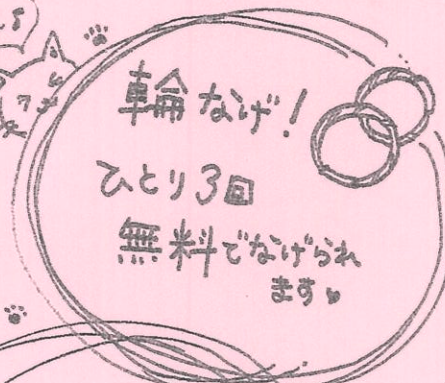 輪なげ!
ひとり3回
無料でなげられ
ます♥